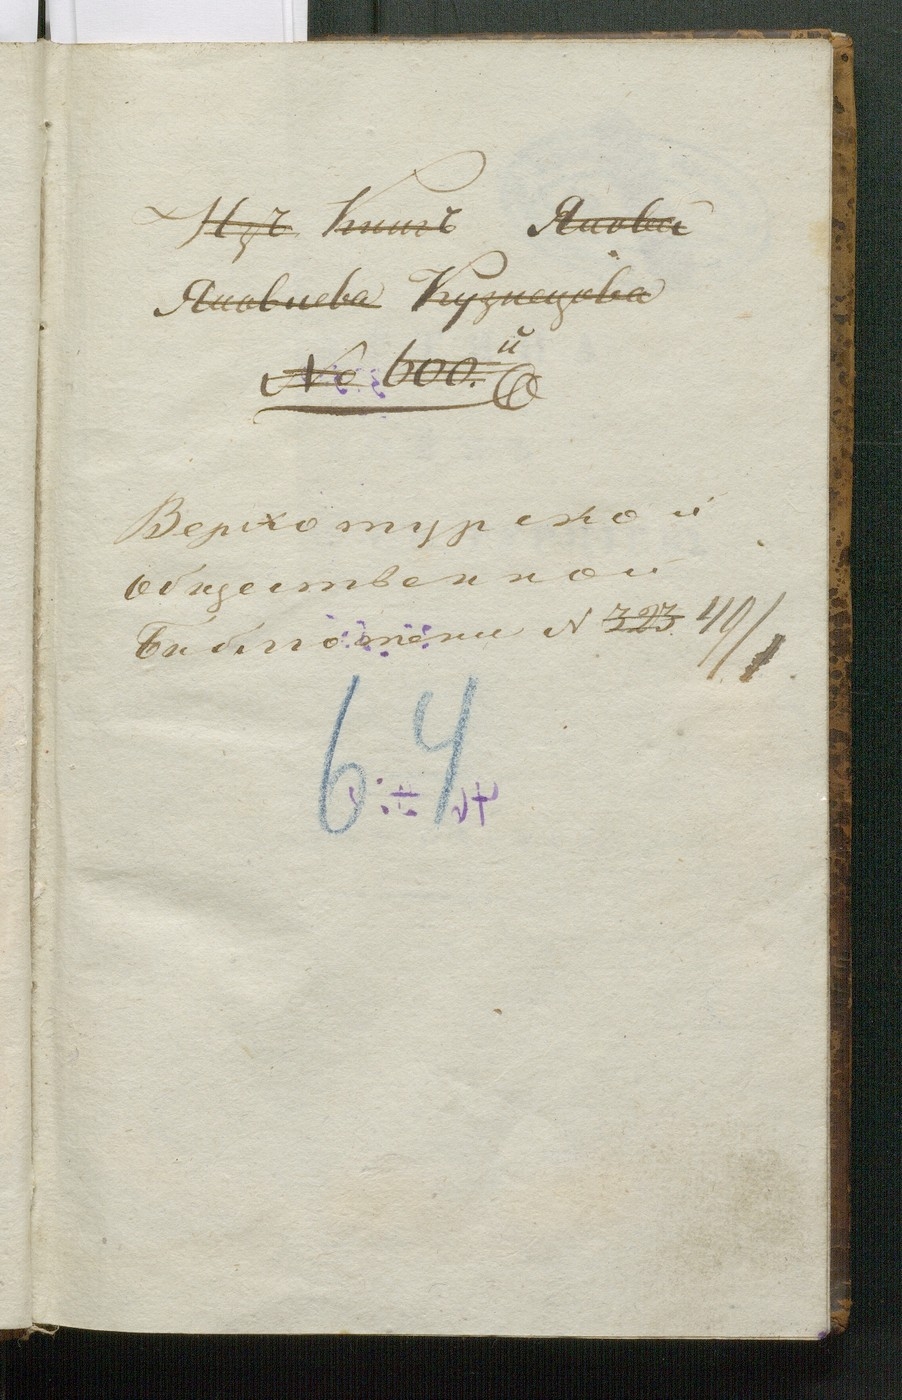 Изъ Книгъ Якова
Яковлева Кузнецова
№ 600.й
Верхотурской
общественной
библіотеки N 323 49/1
64